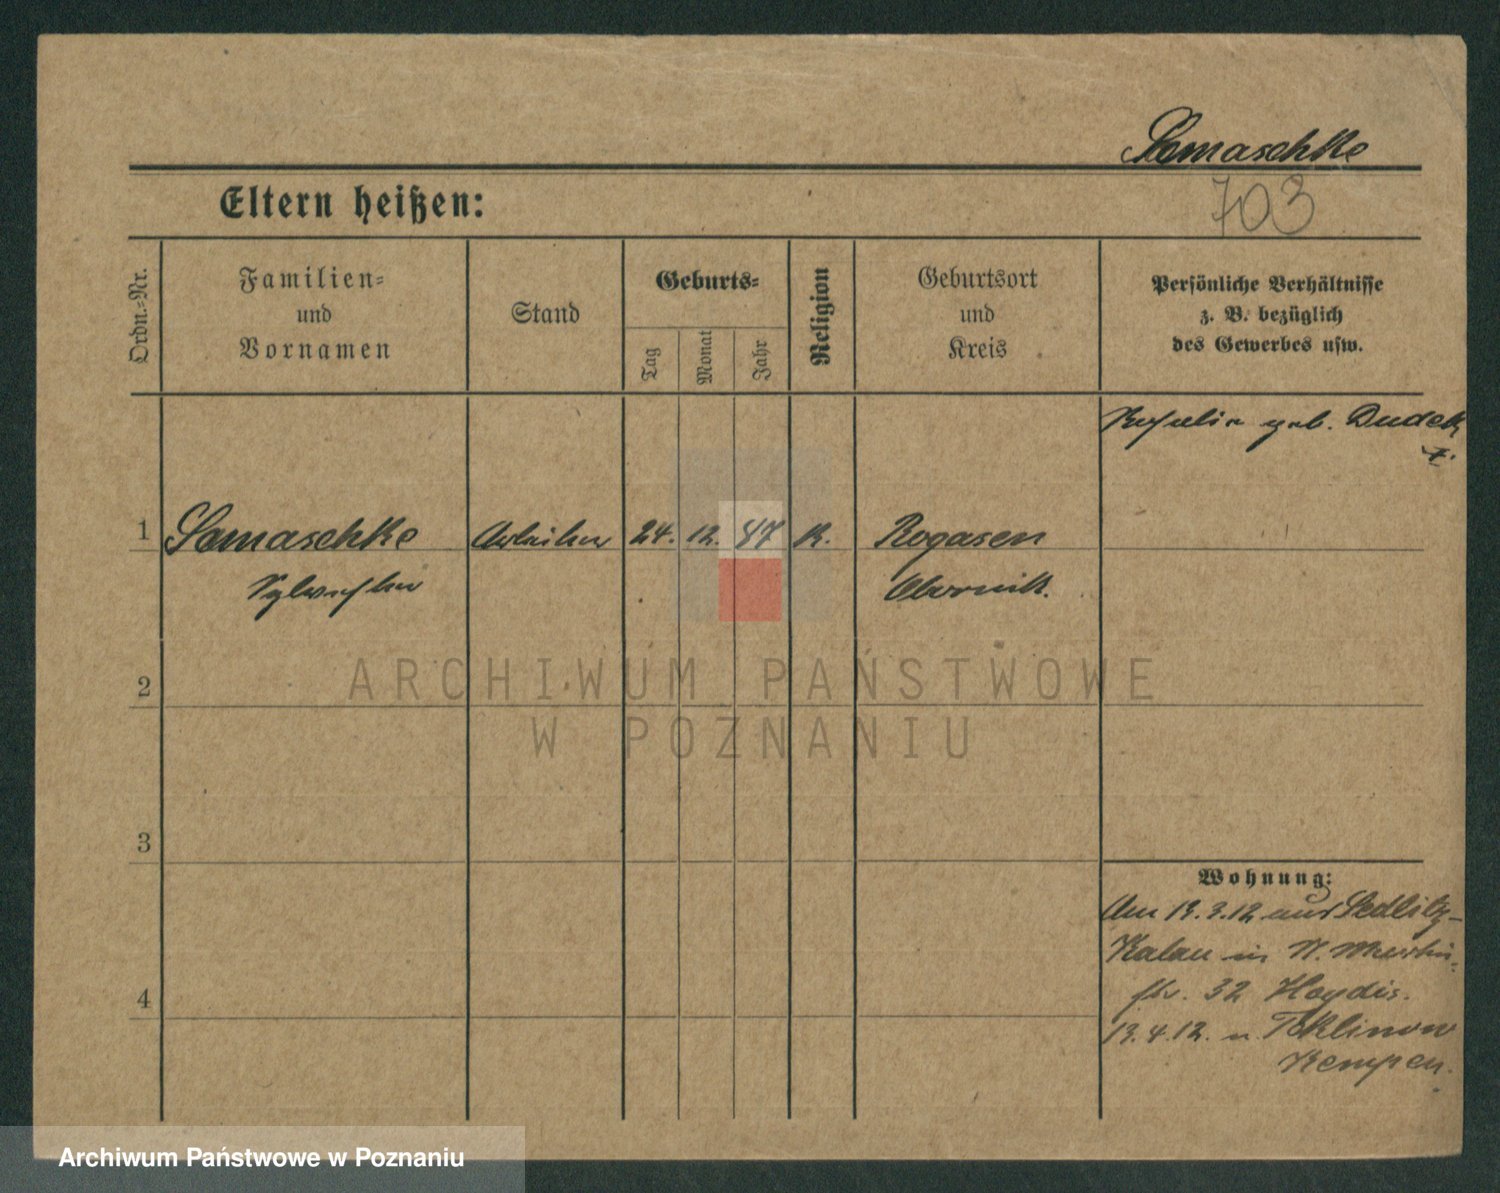 Samaschke
703
Eltern heißen:
Ordn.-Nr.
Familien-
und
Vornamen
Stand
Geburts-
Tag
Monat
Jahr
Religion
Geburtsort
und
Kreis
Persönliche Verhältnisse
z. B. bezüglich
des Gewerbes usw.
geb. Dudek
†.
1 Samaschke Arbeiter 24. 12. 47 K. Rogasen
Sylvester Obornik.
2
3
4
Wohnung:
Am 19.3.12 aus Sedlitz-
Kalau in St. Martin-
str. 32 Haydis.
19.4.12. n. Teklinow
Kempen.
ARCHIWUM PAŃSTWOWE
W POZNANIU
Archiwum Państwowe w Poznaniu